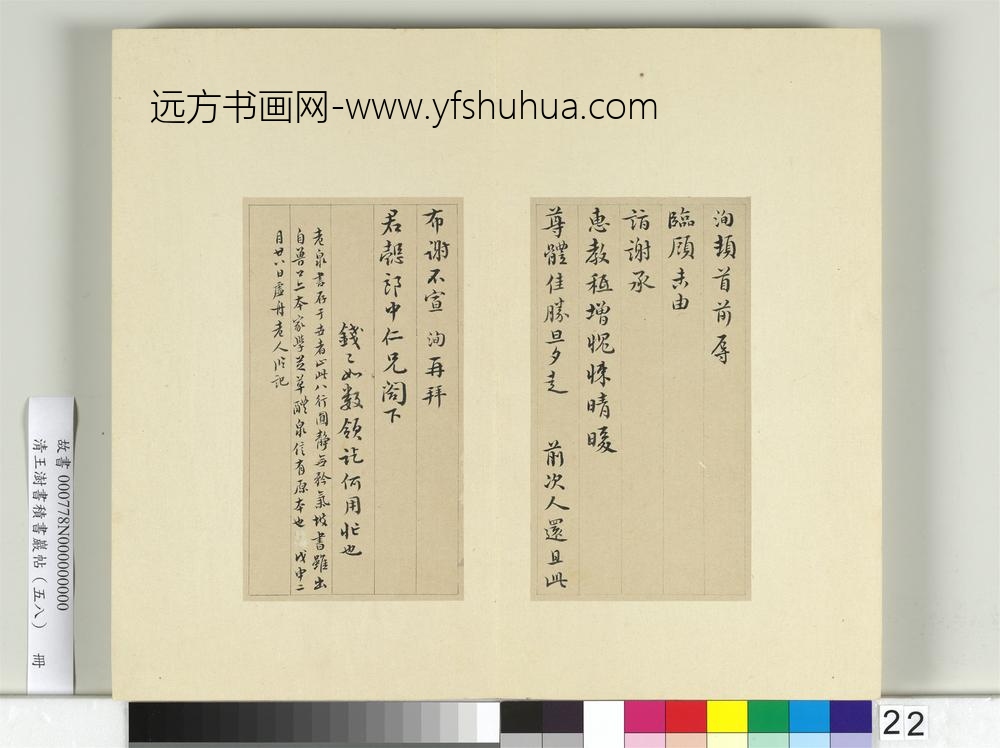 远方书画网-www.yfshuhua.com
洵頓首前辱
臨顧未由
詣謝承
惠教秪增愧悚晴暖
尊體佳勝旦夕走 前次人還且此
布謝不宣 洵再拜
君謨郎中仁兄閤下
錢〻如數領訖何用忙也
老泉書存于世者止此八行圓静無矜氣坡書雖出
自魯公亦本家學芝草醴泉信有原本也 戊申二
月廿八日虛舟老人臨記
故書 000778N000000000
清王澍書積書巖帖(五八) 冊
22